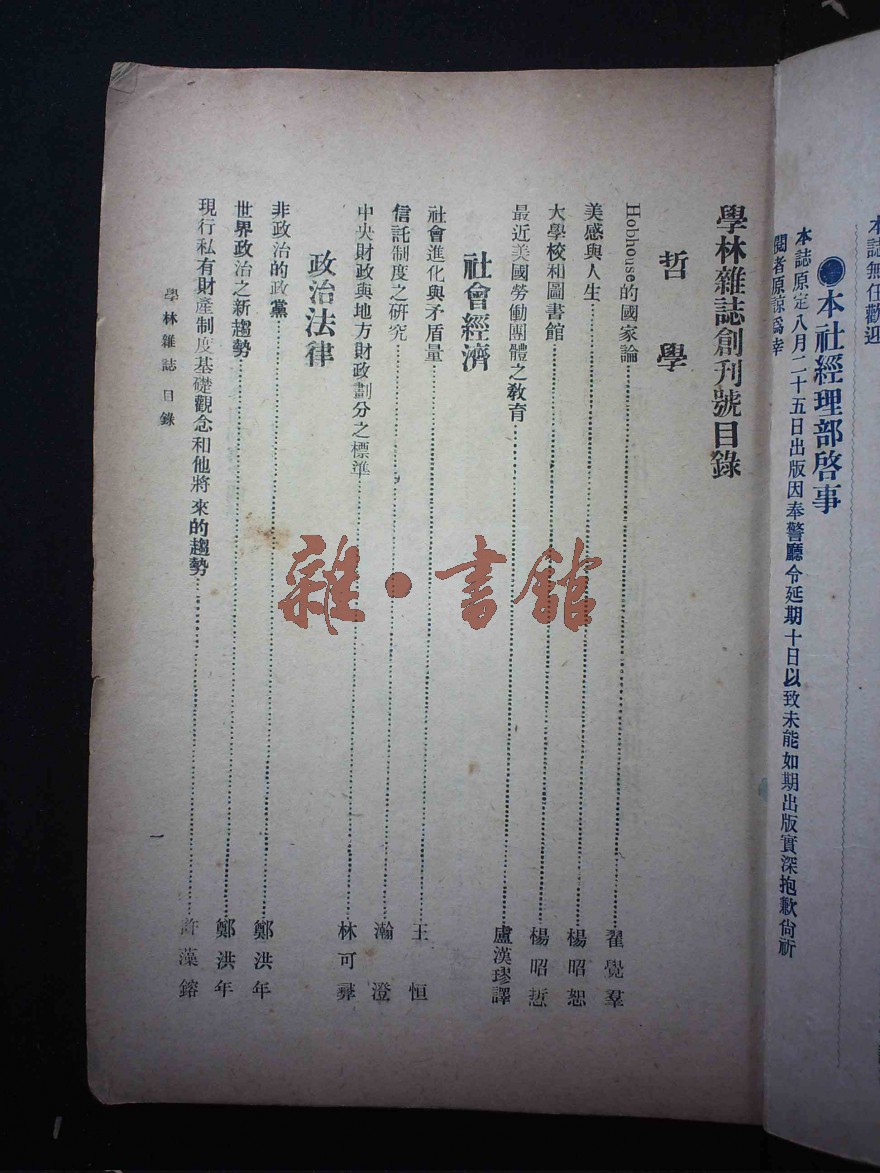 本誌無任歡迎
●本社經理部啓事
本誌原定八月二十五日出版因奉警廳令延期十日以致未能如期出版實深抱歉尙祈
閱者原諒爲幸
學林雜誌創刊號目錄
哲學
Hobhouse的國家論 翟覺羣
美感與人生 楊昭恕
大學校和圖書館 楊昭悊
最近美國勞働團體之敎育 盧漢璆譯
社會經濟
社會進化與矛盾量 王恒
信託制度之研究 瀚澄
中央財政與地方財政劃分之標準 林可彝
政治法律
非政治的政黨 鄭洪年
世界政治之新趨勢 鄭洪年
現行私有財產制度基礎觀念和他將來的趨勢 許藻鎔
學林雜誌 目錄
一
雜·書館